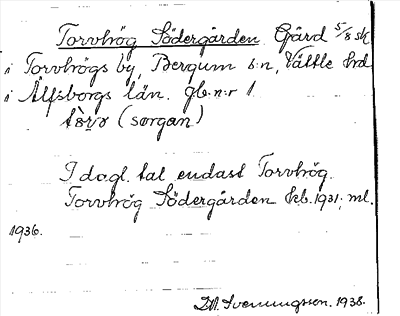 Torvhög Södergården Gård 5/8 sk
i Torvhögs by, Bergum s:n, Vättle hrd
i Älfsborgs län. gb.n:r 1
(sørgan)
I dagl. tal endast Torvhög.
Torvhög Södergården kb. 1931; ml.
1936.
Svenungsson. 1938.